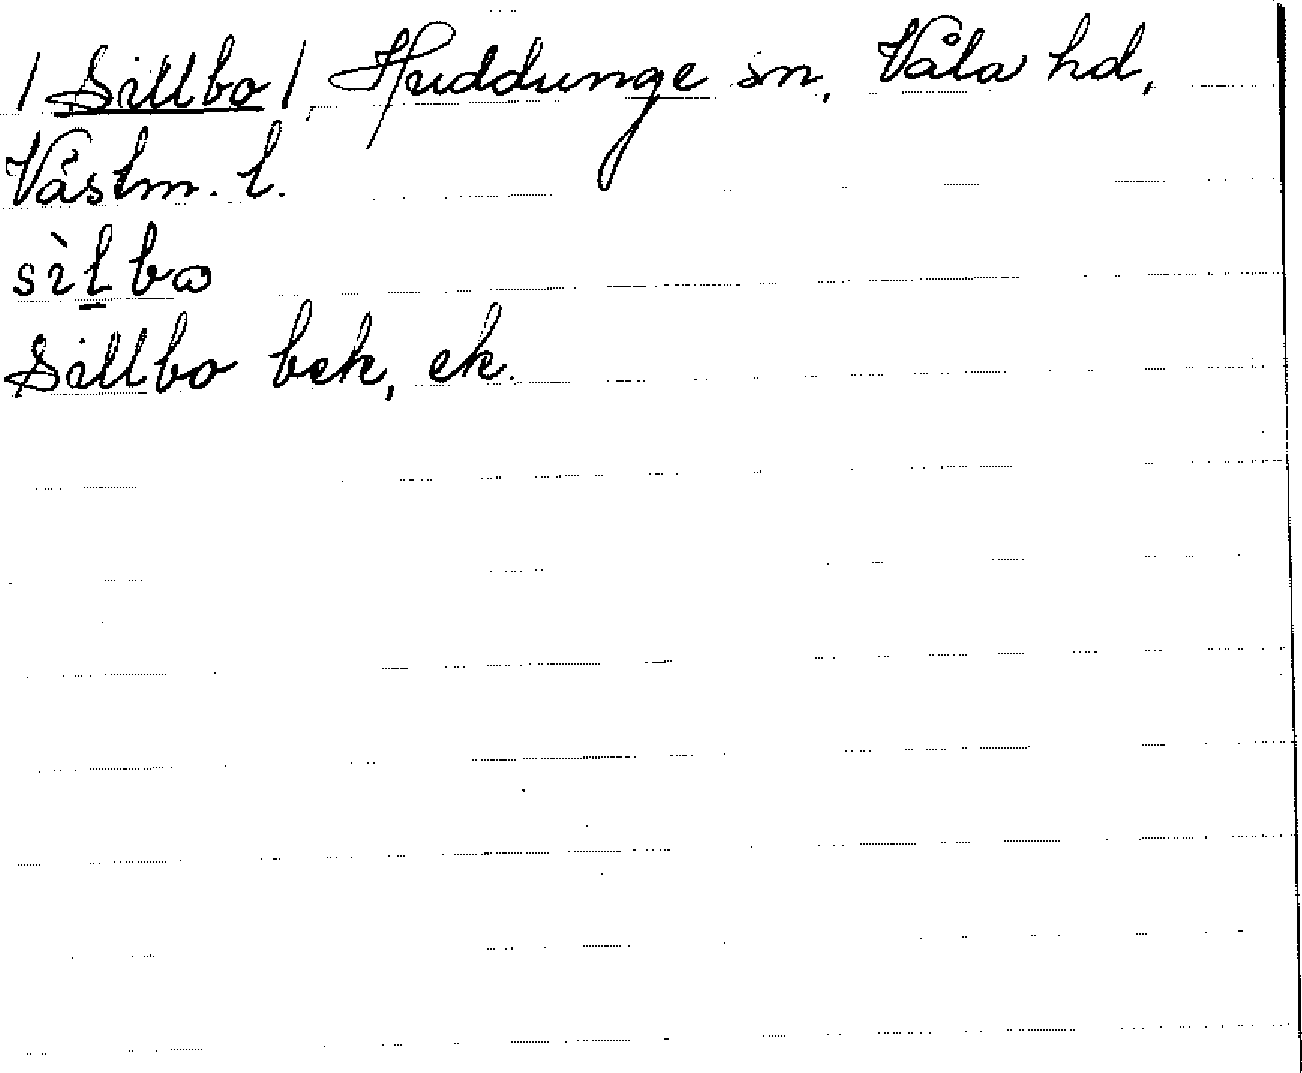 / Sillbo / Huddunge sn, Våla hd,
Västm. l.
sìl̠bω
Sillbo bek, ek.